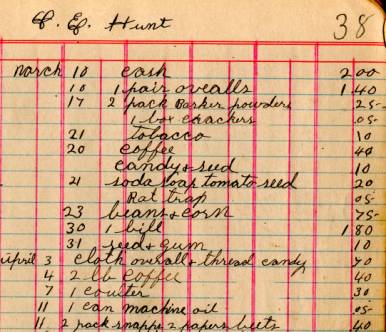 C. E. Hunt 38
march 10 cash 2 00
10 1 pair overalls 1 40
17 2 pack Barker powders 25
1 box crackers .05
21 tobacco 10
20 coffee 40
candy & seed 10
21 soda soap tomato seed 20
Rat trap 05
23 beans & corn 75
30 1 bill 1 80
31 seed & gum 10
april 3 cloth overall & thread candy 70
4 2 lb coffee 40
7 1 coulter 30
11 1 can machine oil 05
11 2 pack snapps 2 papers beets 40